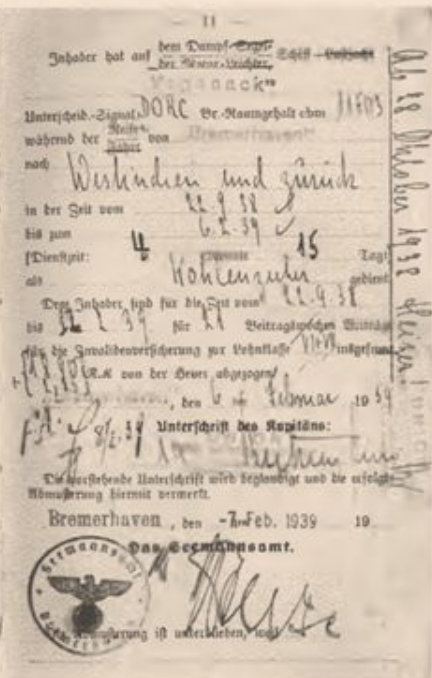 — 11 —
Inhaber hat auf dem Dampf-Segel-
der Motor-Leichter, Schiff
Unterscheid.-Signal DORC Br.-Raumgehalt cbm
während der Reise von Bremerhaven
nach Westindien und zurück
in der Zeit vom 22.9.38
bis zum 6.2.39
(Dienstzeit: 4 Monate 15 Tage)
als Kohlenzieher gedient
Dem Inhaber sind für die Zeit vom 22.9.38
bis 2.39 für Beitragswochen Beiträge
für die Invalidenversicherung zur Lohnklasse insgesamt
R.M. von der Heuer abgezogen
, den 6 ten Februar 1939
Unterschrift des Kapitäns:
Die vorstehende Unterschrift wird beglaubigt und die erfolgte
Abmusterung hiermit vermerkt.
Bremerhaven, den -7. Feb. 1939 19
Das Seemannsamt.
Seemannsamt
Abmusterung ist unterblieben, weil
Ab 18 Oktober 1938 Heizer!